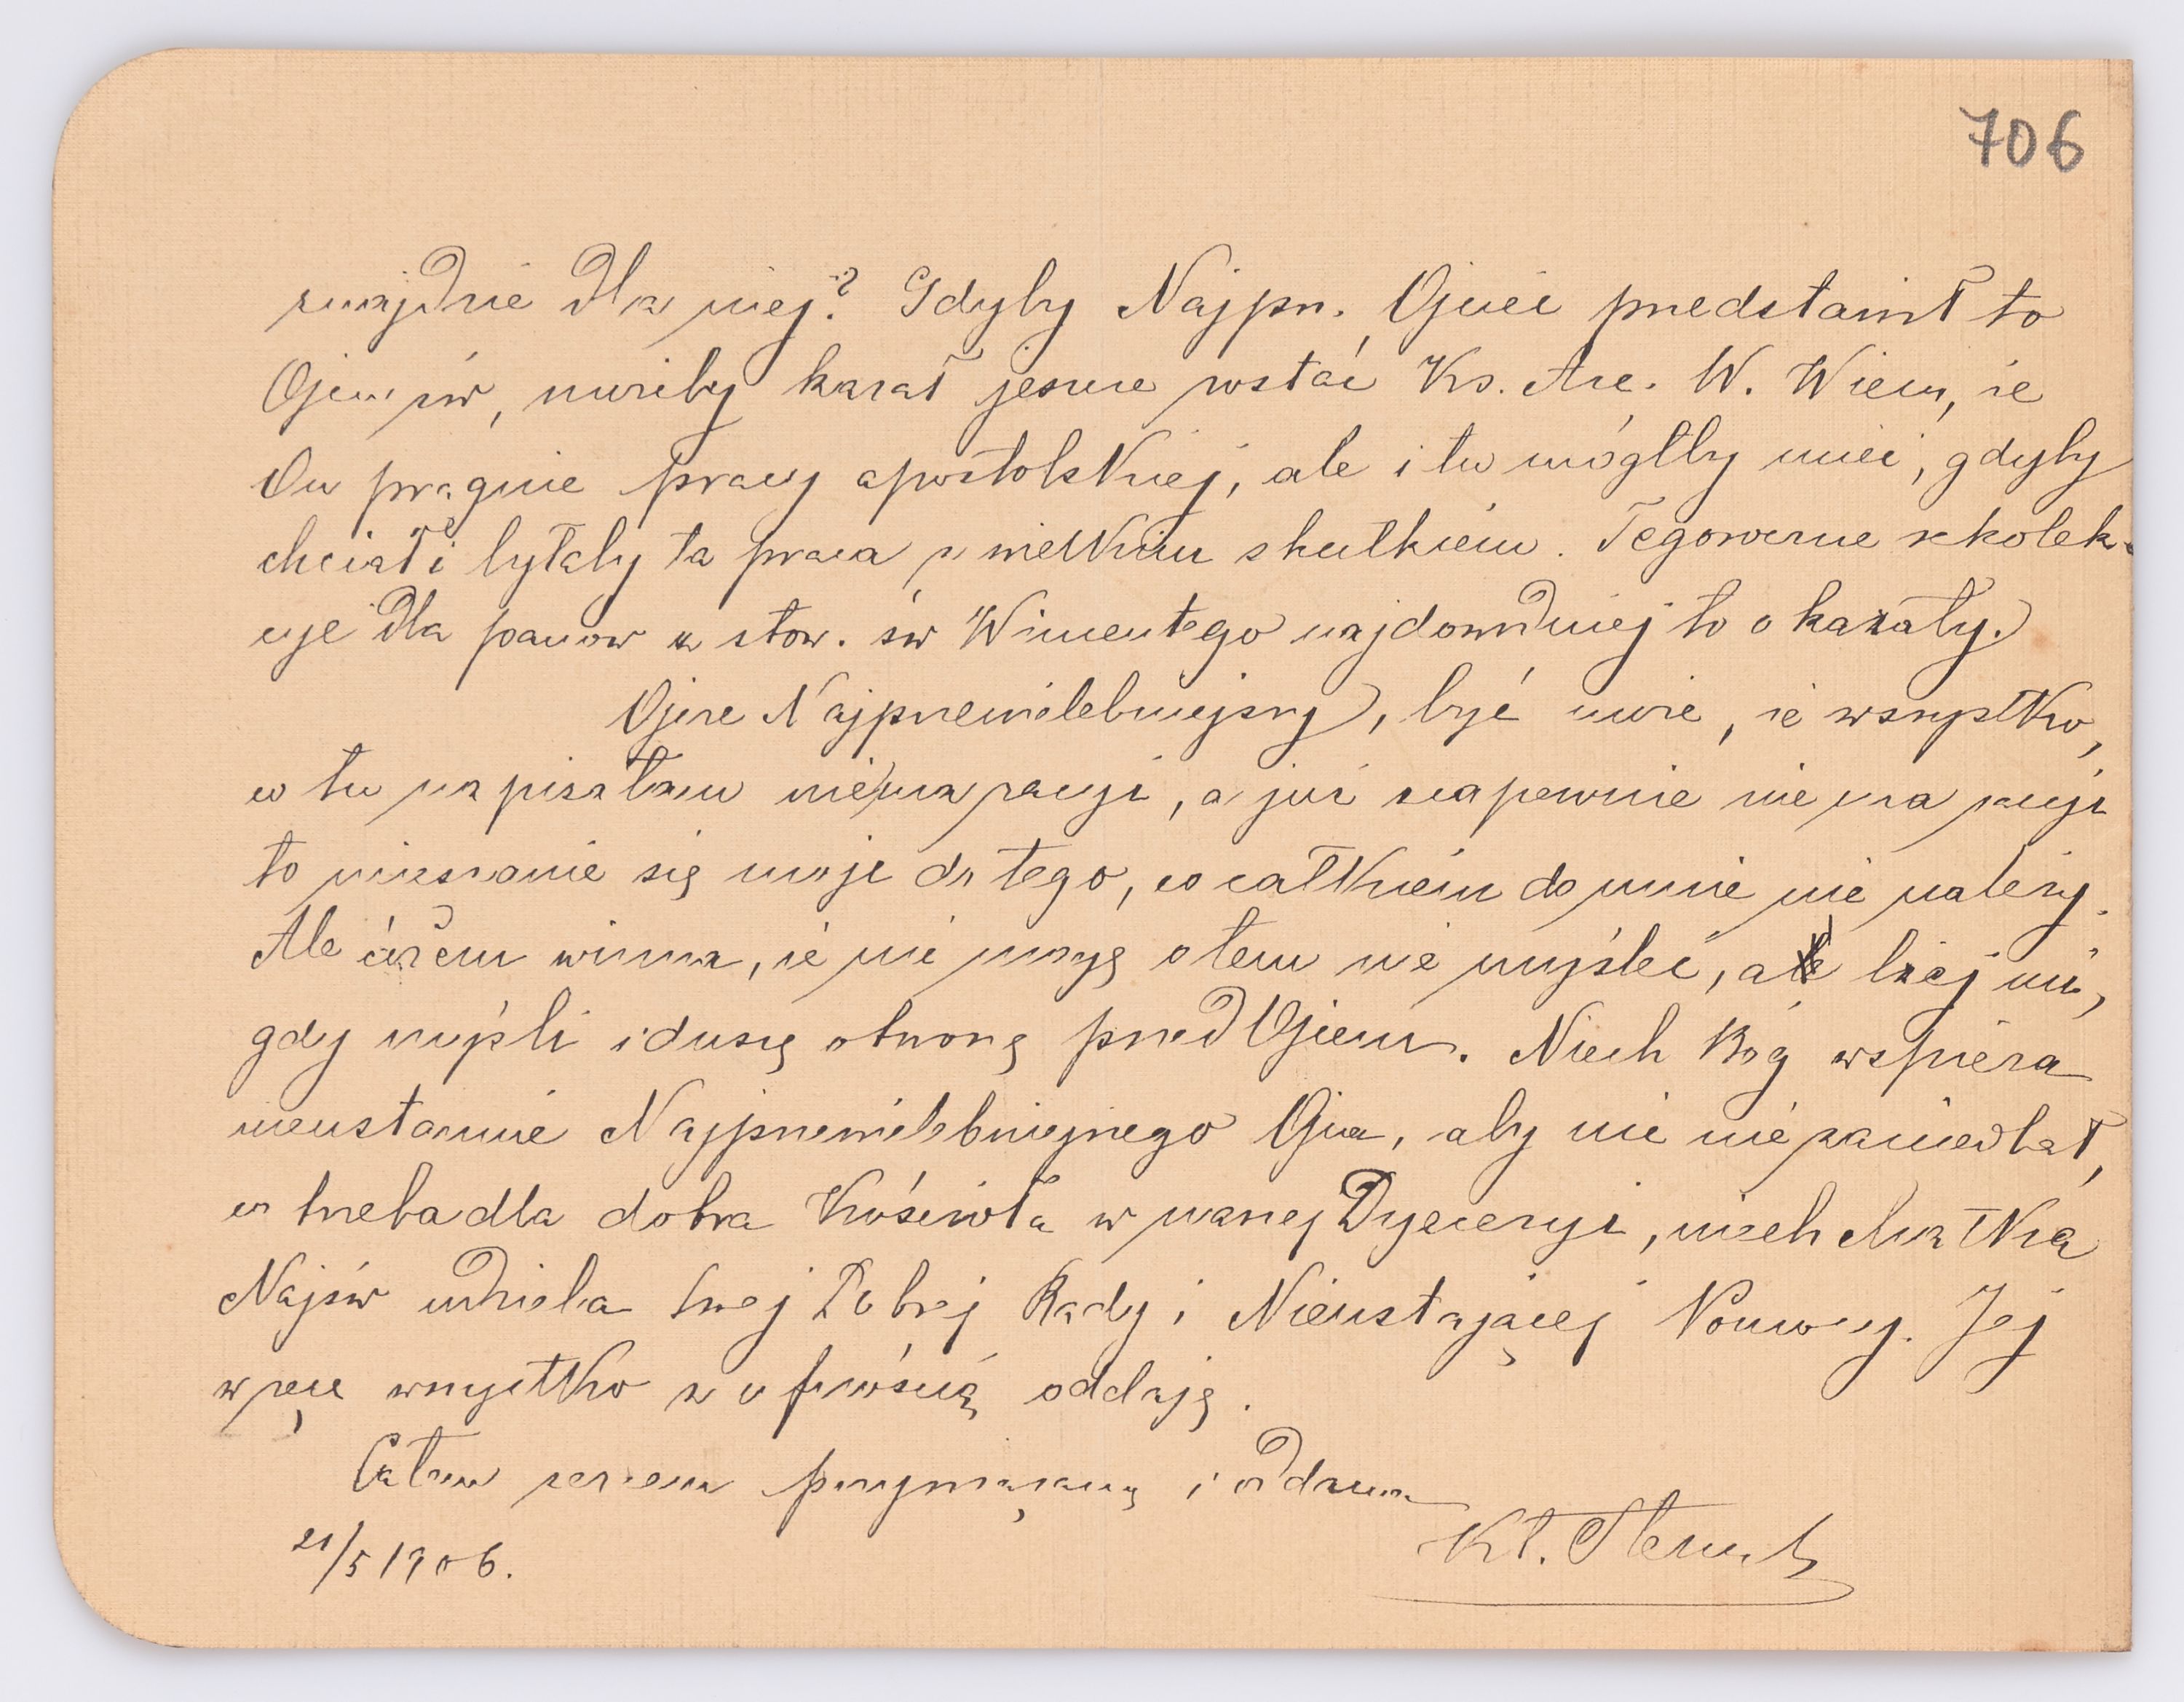 706
znajdzie dla niej? Gdyby Najprz. Ojciec przedstawił to
Ojcu św, możeby kazał jeszcze zostać Ks. Arc. W. Wiem, że
On pragnie pracy apostolskiej, ale i tu mógłby mieć, gdyby
chciał i byłaby ta praca z wielkim skutkiem. Tegoroczne rekolek-
cye dla panów z stow. św Wincentego najdowodniej to okazały.
Ojcze Najprzewielebniejszy, być może, że wszystko,
co tu napisałam nie ma racyi, a już zapewnie nie ma racyi
to mieszanie się moje do tego, co całkiem do mnie nie należy.
Ale cóżem winna, że nie mogę o tem nie myśleć, a lżej mi,
gdy myśli i duszę otworzę przed Ojcem. Niech Bóg wspiera
nieustannie Najprzewielebniejszego Ojca, aby nic nie zaniedbał,
co trzeba dla dobra Kościoła w naszej Dyecezyi, niech Matka
Najśw udziela Swej Dobrej Rady i Nieustającej Pomocy. Jej
w ręce wszystko z ufnością oddaję.
Całem sercem przywiązana i oddana
Kl.
21/5 1906.